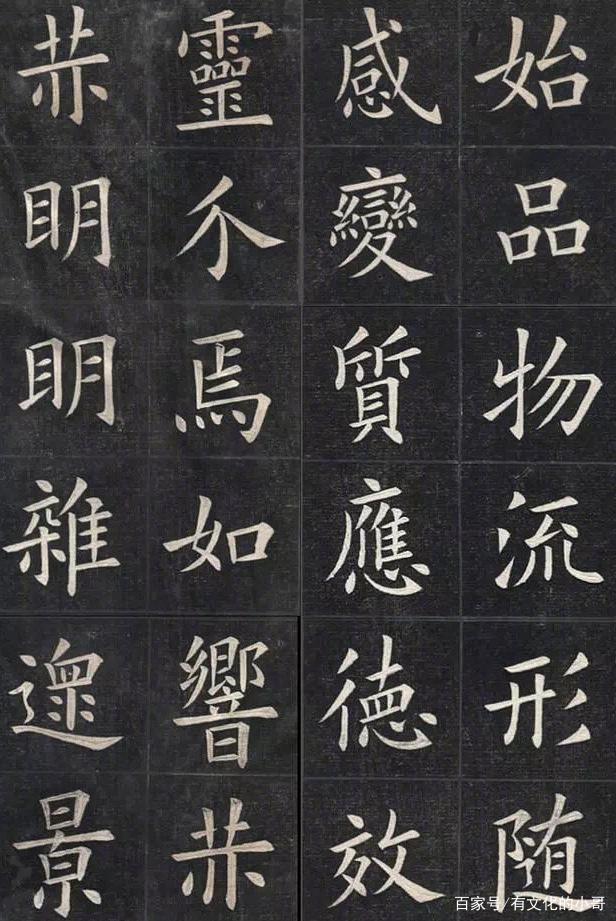 始品物流形随
感變質應德效
靈介焉如響赫
赫明明雜遝景
百家号/有文化的小哥